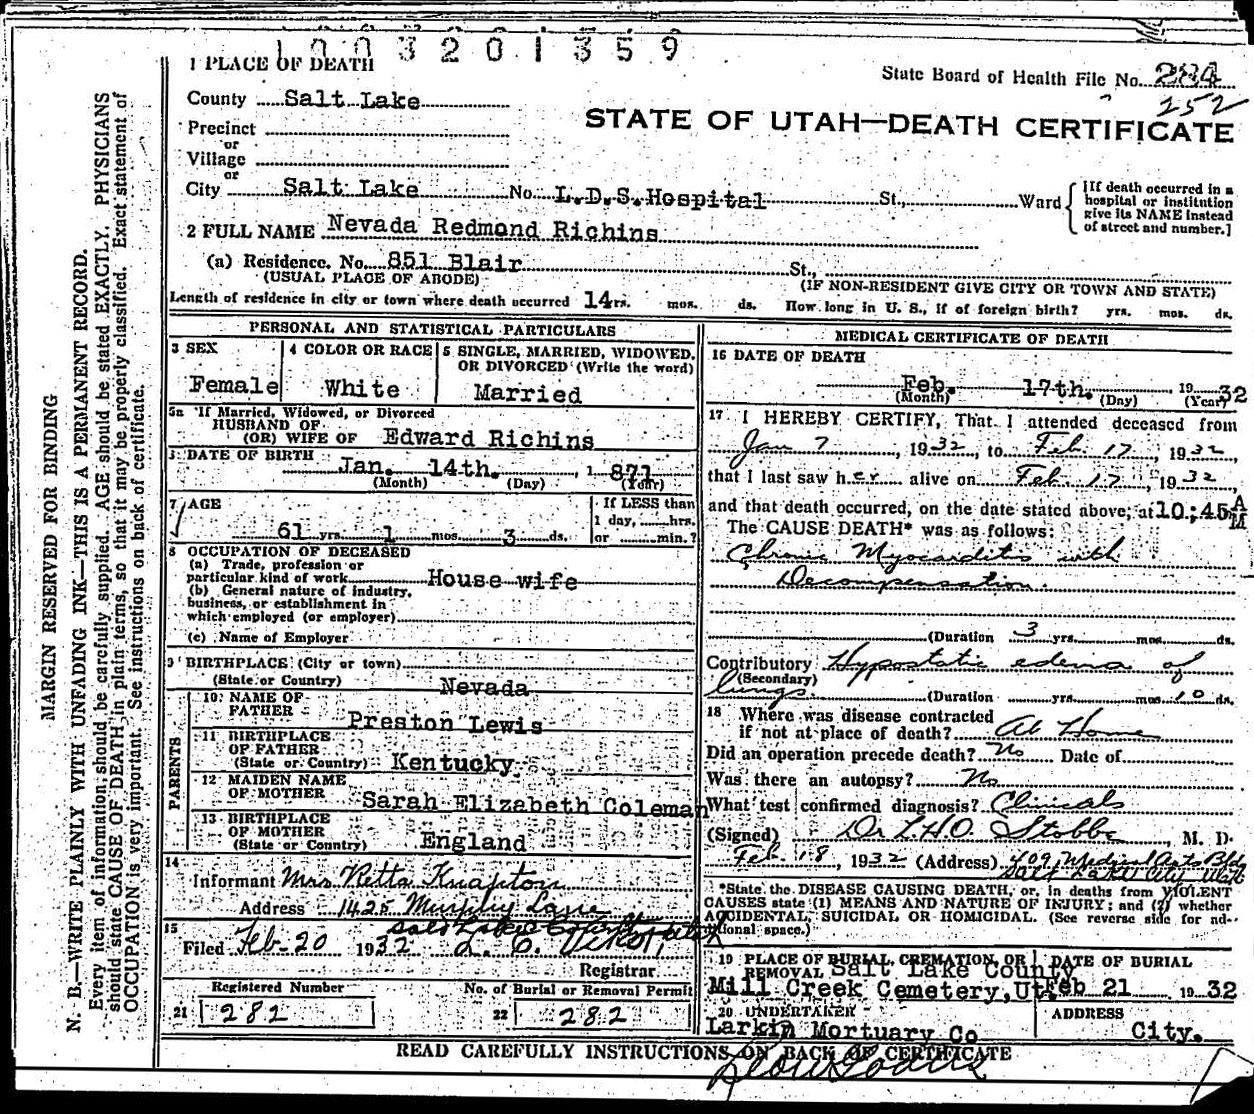 1003201359
1 PLACE OF DEATH
State Board of Health File No. 284
252
County Salt Lake
STATE OF UTAH—DEATH CERTIFICATE
Precinct
or
Village
or
City Salt Lake No. L.D.S. Hospital St., Ward
[If death occurred in a hospital or institution give its NAME instead of street and number.]
2 FULL NAME Nevada Redmond Richins
(a) Residence. No. 851 Blair St.,
(USUAL PLACE OF ABODE) (IF NON-RESIDENT GIVE CITY OR TOWN AND STATE)
Length of residence in city or town where death occurred 14 rs. mos. ds. How long in U. S., if of foreign birth? yrs. mos. ds.
PERSONAL AND STATISTICAL PARTICULARS
3 SEX Female
4 COLOR OR RACE White
5 SINGLE, MARRIED, WIDOWED, OR DIVORCED (Write the word) Married
5a If Married, Widowed, or Divorced
HUSBAND OF
(OR) WIFE OF Edward Richins
DATE OF BIRTH Jan. 14th. , 1 871
(Month) (Day) (Year)
7 AGE 61 yrs. 1 mos. 3 ds.
If LESS than
1 day, hrs.
or min.?
8 OCCUPATION OF DECEASED
(a) Trade, profession or
particular kind of work House wife
(b) General nature of industry,
business, or establishment in
which employed (or employer)
(c) Name of Employer
9 BIRTHPLACE (City or town)
(State or Country) Nevada
PARENTS
10 NAME OF FATHER Preston Lewis
11 BIRTHPLACE OF FATHER
(State or Country) Kentucky
12 MAIDEN NAME OF MOTHER Sarah Elizabeth Coleman
13 BIRTHPLACE OF MOTHER
(State or Country) England
14
Informant Mrs Retta Knapton
Address 1425 Murphy Lane
Salt Lake City Utah
15
Filed Feb-20 1932
Registrar
Registered Number
21 282
No. of Burial or Removal Permit
22 282
MEDICAL CERTIFICATE OF DEATH
16 DATE OF DEATH
Feb. 17th. 19 32
(Month) (Day) (Year)
17 I HEREBY CERTIFY, That I attended deceased from
Jan 7, 1932, to Feb. 17, 1932,
that I last saw her alive on Feb. 17, 1932,
and that death occurred, on the date stated above, at 10;45 A M
The CAUSE DEATH* was as follows:
Chronic Myocarditis with
Decompensation.
(Duration 3 yrs. mos. ds.
Contributory Hypostatic edema of
(Secondary)
lungs (Duration yrs. mos. 10 ds.
18 Where was disease contracted
if not at place of death? At Home
Did an operation precede death? No Date of
Was there an autopsy? No
What test confirmed diagnosis? Clinicals
(Signed) Dr L.H.O. Stobbe, M. D.
Feb 18, 1932 (Address) 409 Medical Arts Bldg
Salt Lake City Utah
*State the DISEASE CAUSING DEATH, or, in deaths from VIOLENT
CAUSES state (1) MEANS AND NATURE OF INJURY; and (2) whether
ACCIDENTAL, SUICIDAL OR HOMICIDAL. (See reverse side for ad-
ditional space.)
19 PLACE OF BURIAL, CREMATION, OR REMOVAL Salt Lake County
Mill Creek Cemetery, Ut.
DATE OF BURIAL
Feb 21 19 32
20 UNDERTAKER
Larkin Mortuary Co
ADDRESS
City.
READ CAREFULLY INSTRUCTIONS ON BACK OF CERTIFICATE
MARGIN RESERVED FOR BINDING
N. B.—WRITE PLAINLY WITH UNFADING INK—THIS IS A PERMANENT RECORD.
Every item of information should be carefully supplied. AGE should be stated EXACTLY. PHYSICIANS
should state CAUSE OF DEATH in plain terms, so that it may be properly classified. Exact statement of
OCCUPATION is very important. See instructions on back of certificate.